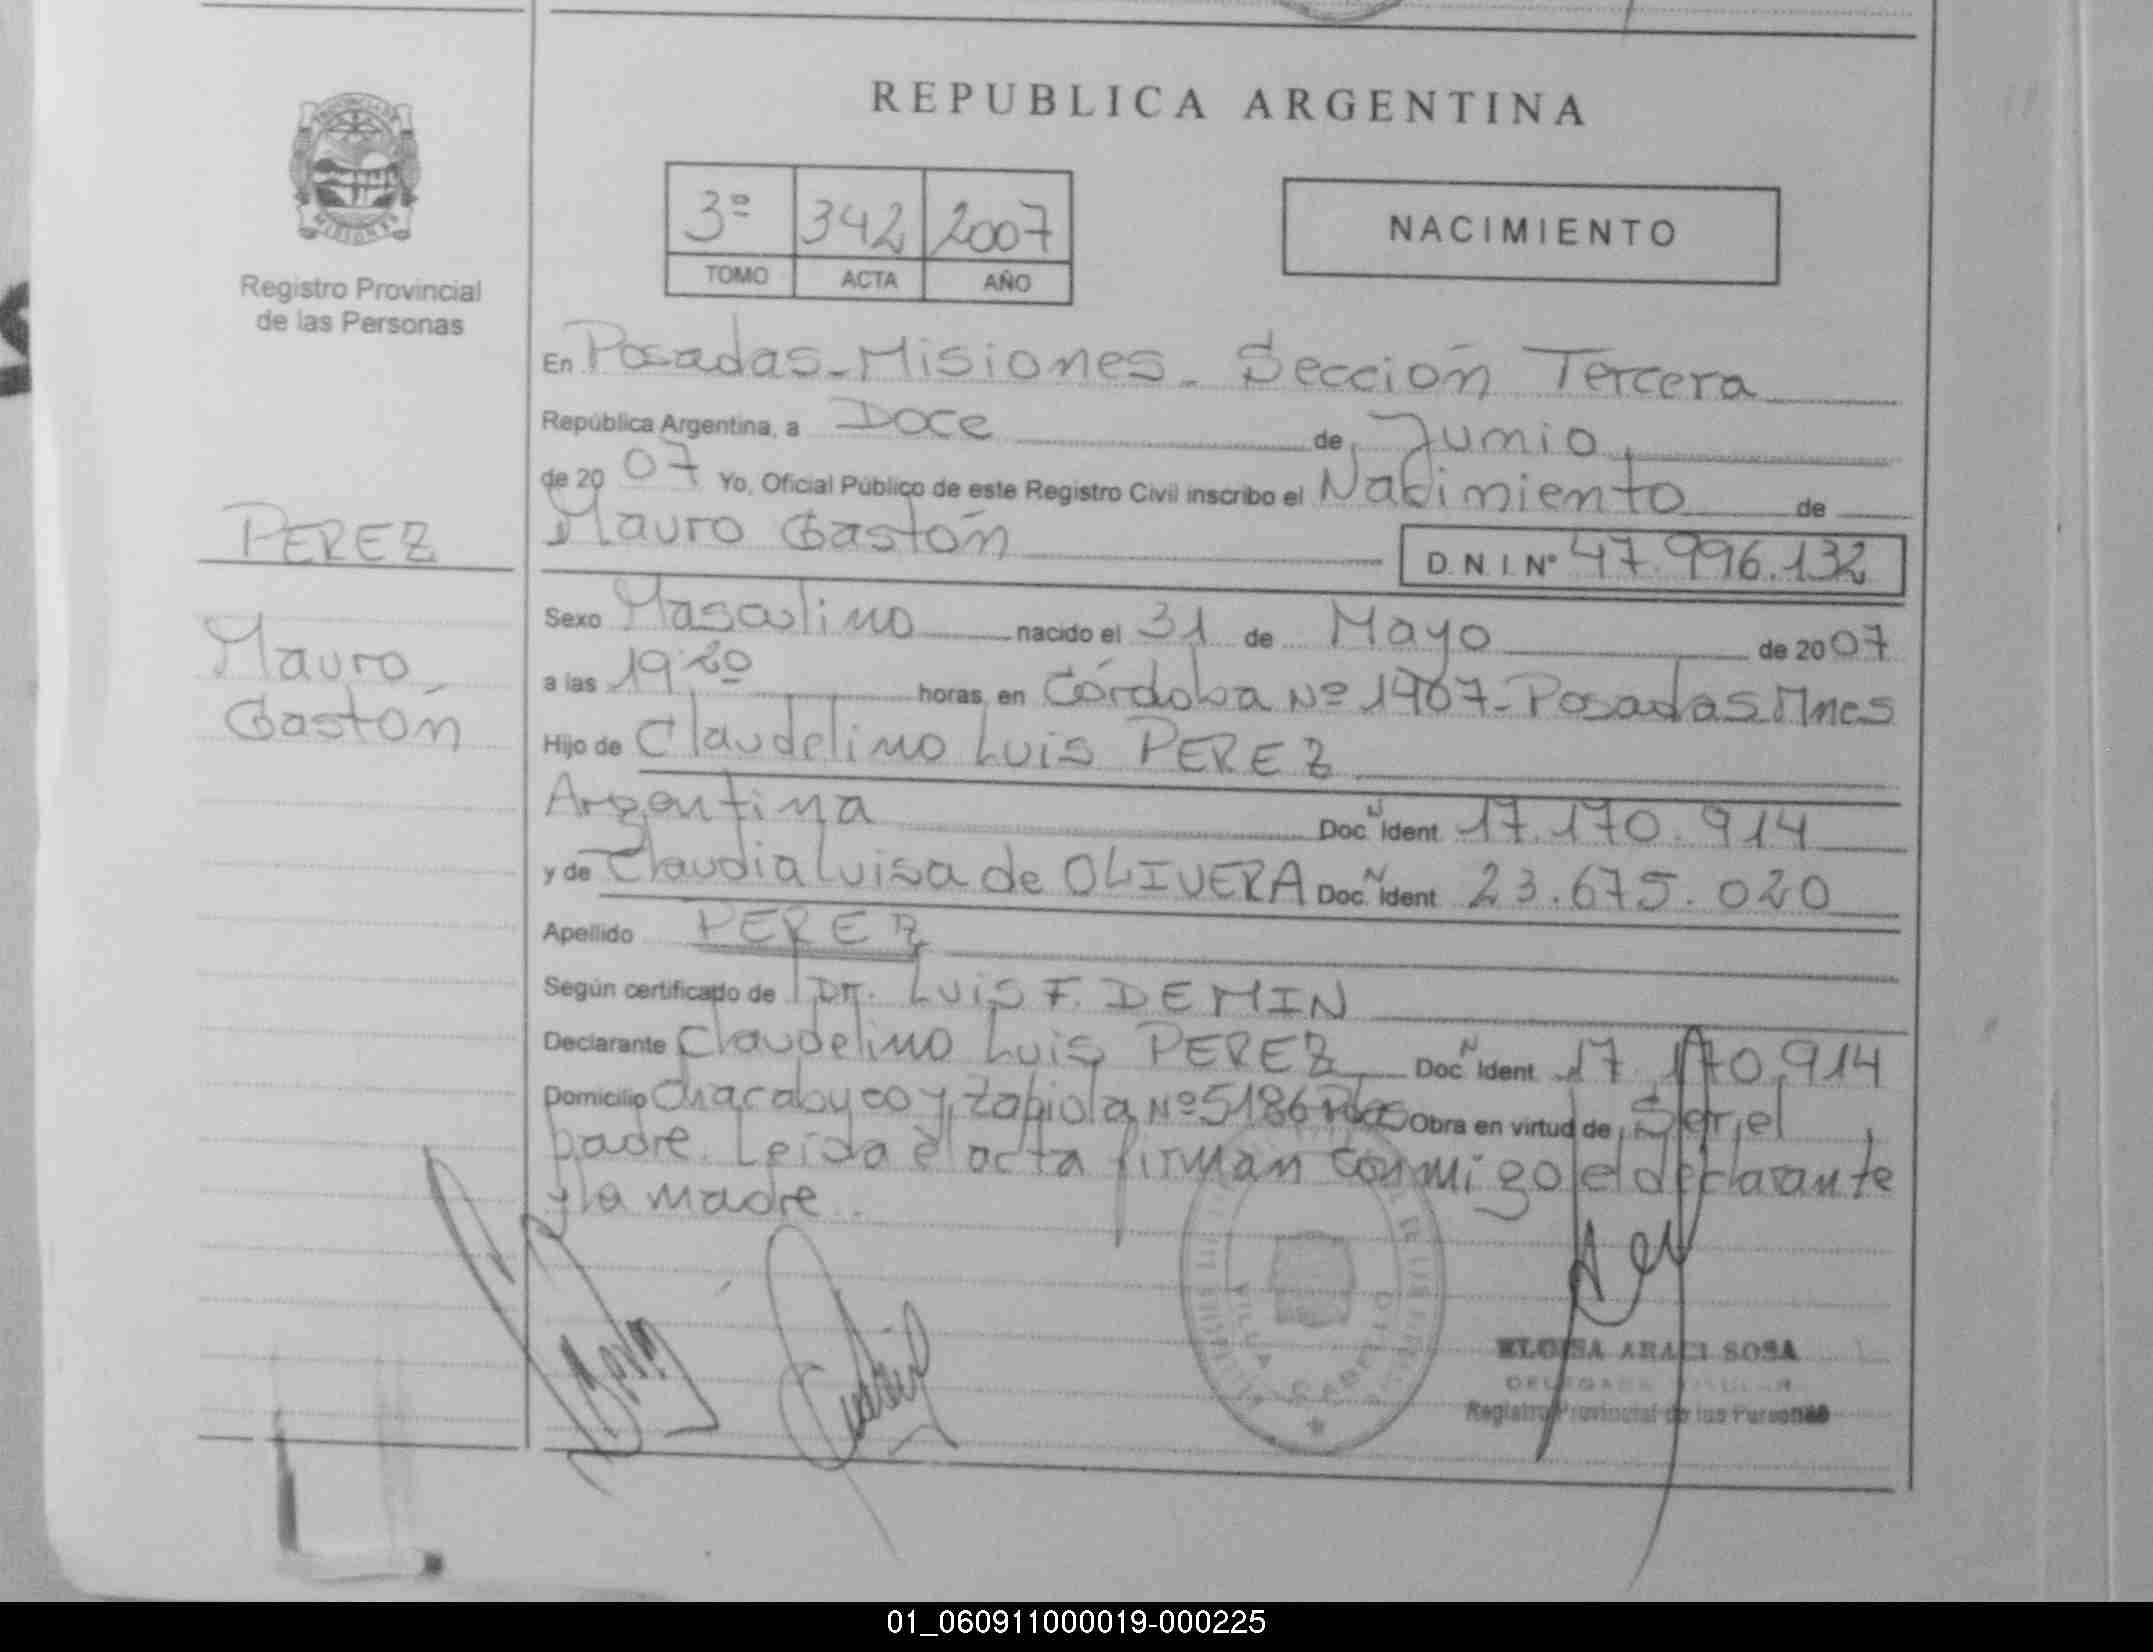 REPUBLICA ARGENTINA
MISIONES
Registro Provincial
de las Personas
3º 342 2007
TOMO ACTA AÑO
NACIMIENTO
En Posadas - Misiones - Sección Tercera
República Argentina, a Doce de Junio
de 2007 Yo, Oficial Público de este Registro Civil inscribo el Nacimiento de
Mauro Gastón
D.N.I. Nº 47.996.132
PEREZ
Mauro
Gastón
Sexo Masculino nacido el 31 de Mayo de 2007
a las 19:20 horas, en Córdoba Nº 1907 - Posadas Mnes
Hijo de Claudelino Luis PEREZ
Argentina Doc. N Ident 17.170.914
y de Claudia Luisa de OLIVERA Doc. N Ident 23.675.020
Apellido PEREZ
Según certificado de Dr. Luis F. DEMIN
Declarante Claudelino Luis PEREZ Doc. N Ident 17.170.914
Domicilio Chacabuco y Zapiola Nº 5186 Pdas Obra en virtud de Ser el
padre. Leída el acta firman conmigo el declarante
y la madre.
VILLA CABELLO
ELOISA ARACI SOSA
DELEGADA TITULAR
Registro Provincial de las Personas
01_060911000019-000225